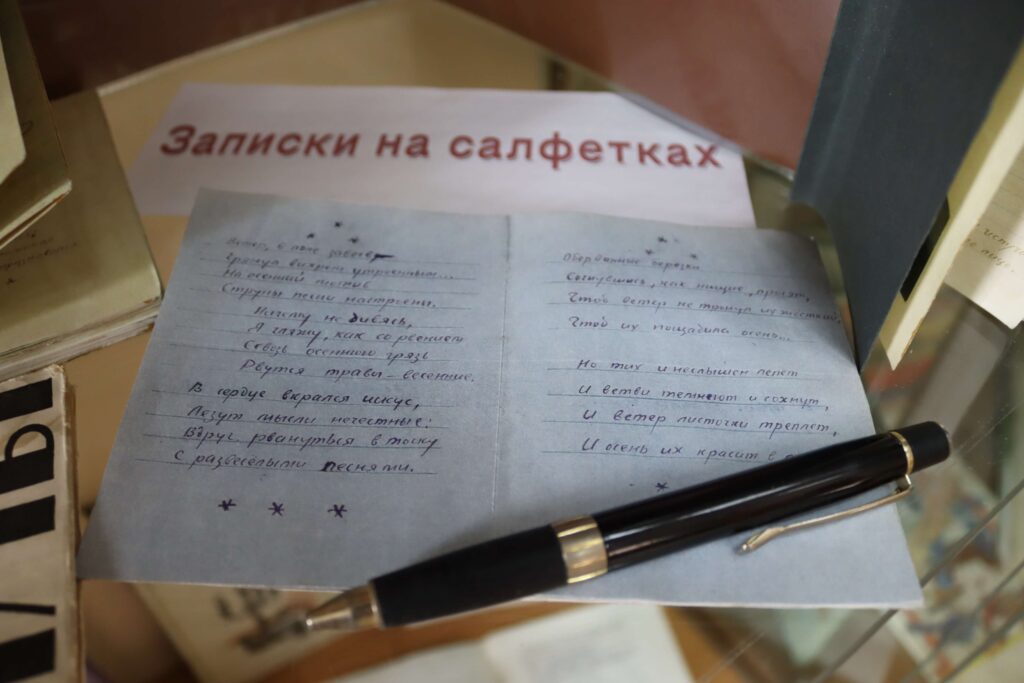 Записки на салфетках
* * *
Ветер, в поле
вихрем утроенным...
На осенний мотив
Струны песни настроены.
Ничему не дивясь,
Я гляжу, как со рвением
Сквозь осеннюю грязь
Рвутся травы – весенние.
В сердце вкрался искус,
Лезут мысли нечестные:
Вдруг рвануться в тоску
С развесёлыми песнями.
* * *
* * *
Оборванные березки
Согнувшись, как нищие, просят,
Чтоб ветер не тронул их жесткий,
Чтоб их пощадила осень.
Но тих и неслышен лепет
И ветви темнеют и сохнут,
И ветер листочки треплет,
И осень их красит в
*